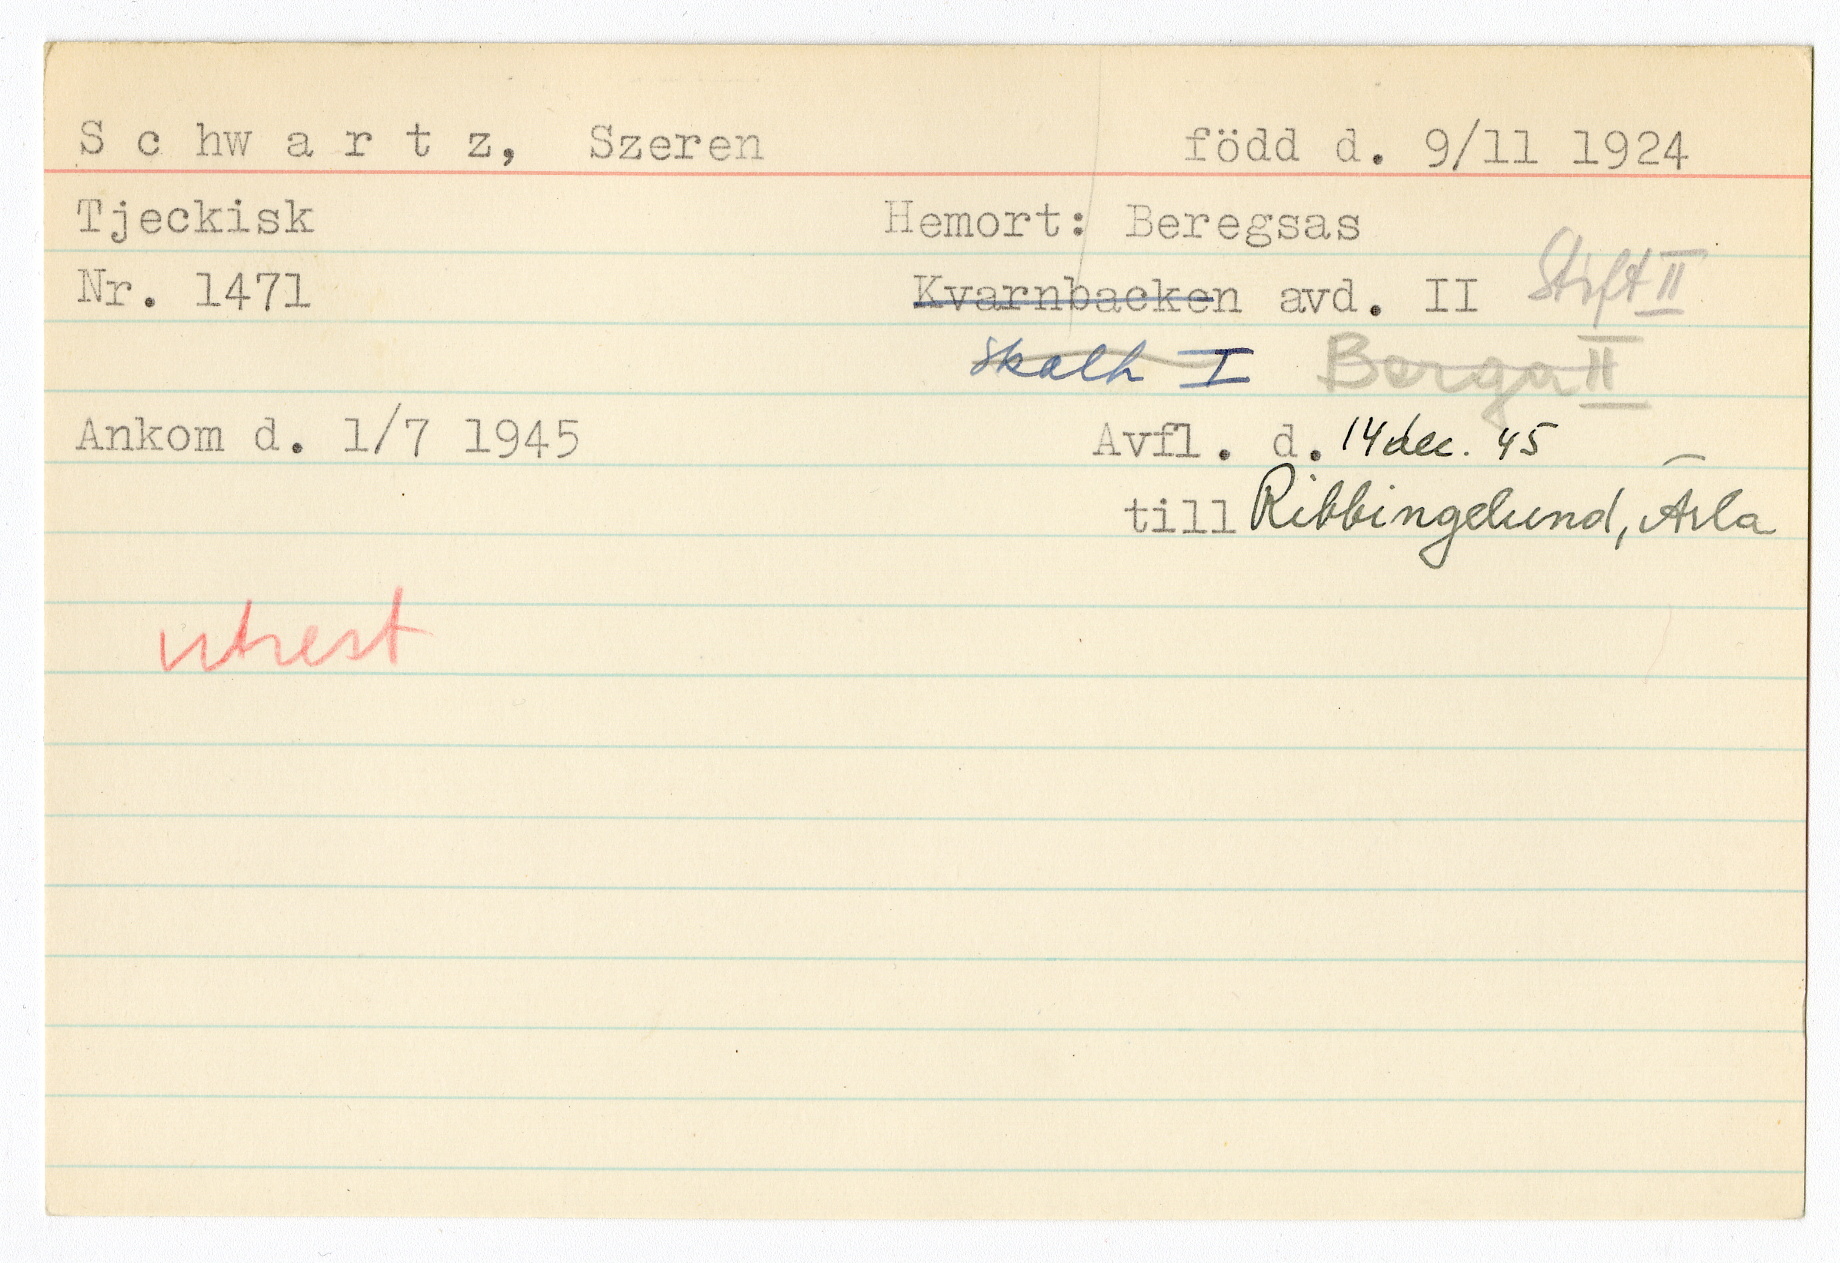 Schwartz, Szeren född d. 9/11 1924
Tjeckisk Hemort: Beregsas
Nr. 1471 Kvarnbacken avd. II Stift II
Skolh I Berga II
Ankom d. 1/7 1945 Avfl. d. 14 dec. 45
till Ribbingelund, Ärla
utrest